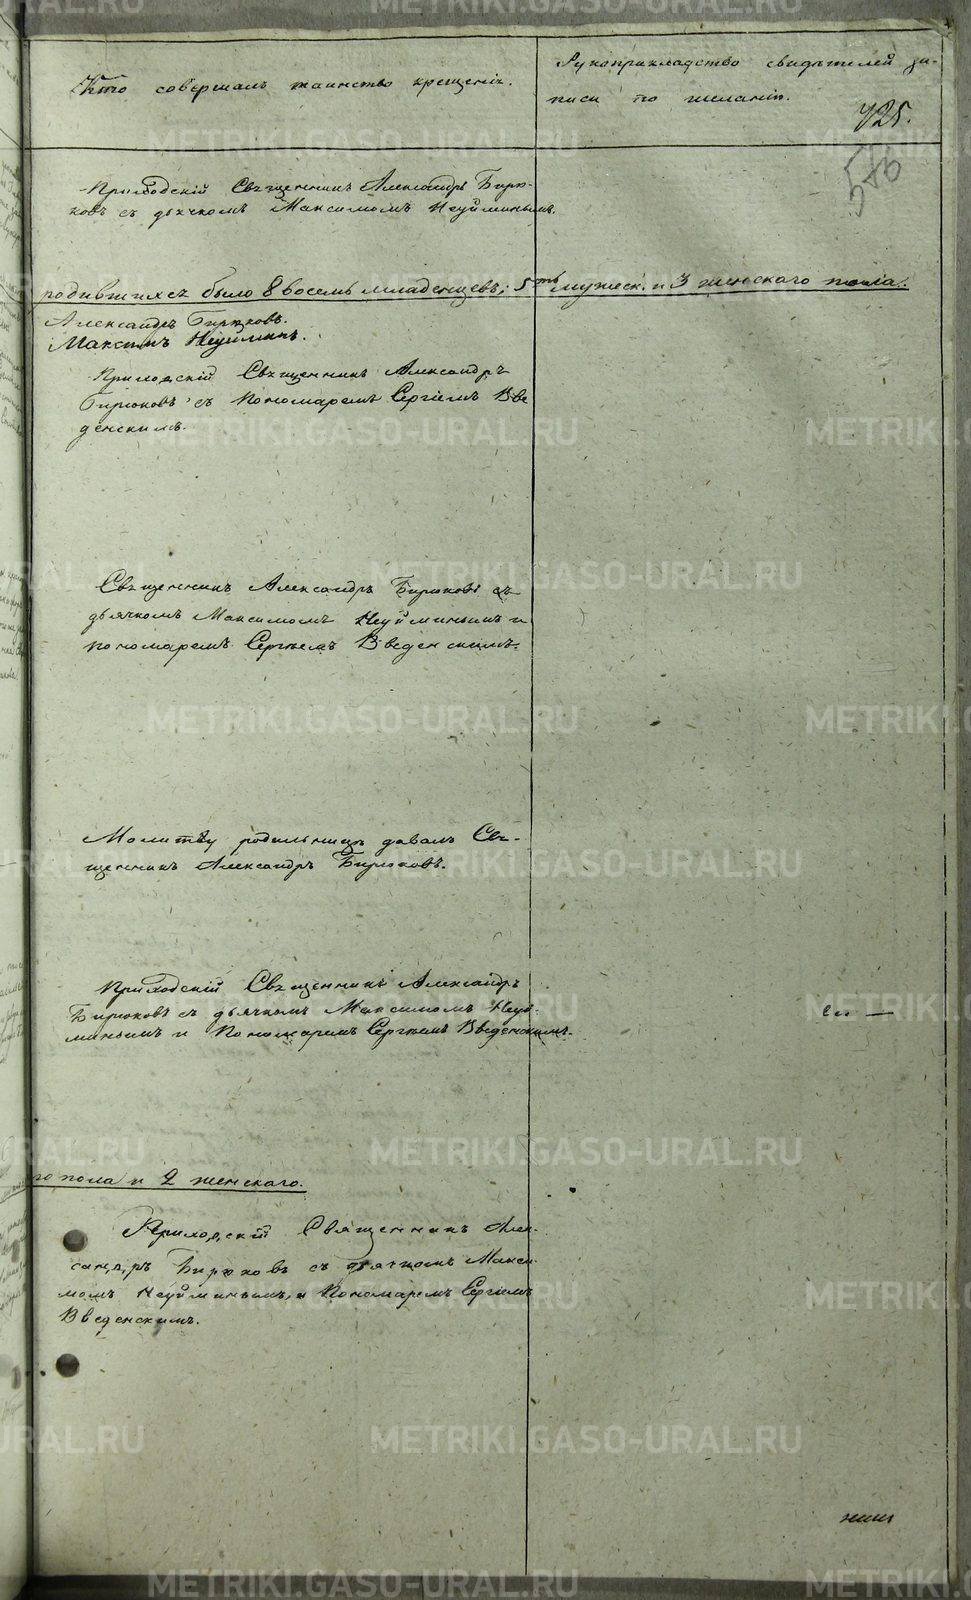 Кто совершалъ таинство крещенія.
Рукоприкладство свидѣтелей за-
писи по желанію.
425.
Приходскій Священникъ Александръ Бирю-
ковъ съ дьячкомъ Максимомъ Неуйминымъ.
родившихся было 8 восемь младенцевъ; 5ть мужеск. и 3 женскаго пола.
Александръ Бирюковъ.
Максимъ Неуйминъ.
Приходскій Священникъ Александръ
Бирюковъ съ Пономаремъ Сергіемъ Вве
денскимъ.
Священникъ Александръ Бирюковъ съ
дьячкомъ Максимомъ Неуйминымъ и
пономаремъ Сергѣемъ Введенскимъ.
Молитву родильницѣ давалъ Свя-
щенникъ Александръ Бирюковъ.
Приходскій Священникъ Александръ
Бирюковъ съ дьячкомъ Максимомъ Неуй-
минымъ и Пономаремъ Сергѣемъ Введенскимъ.
го пола и 2 женскаго.
Приходскій Священникъ Алек-
сандръ Бирюковъ съ дьячкомъ Макси-
момъ Неуйминымъ, и Пономаремъ Сергіемъ
Введенскимъ.
METRIKI.GASO-URAL.RU